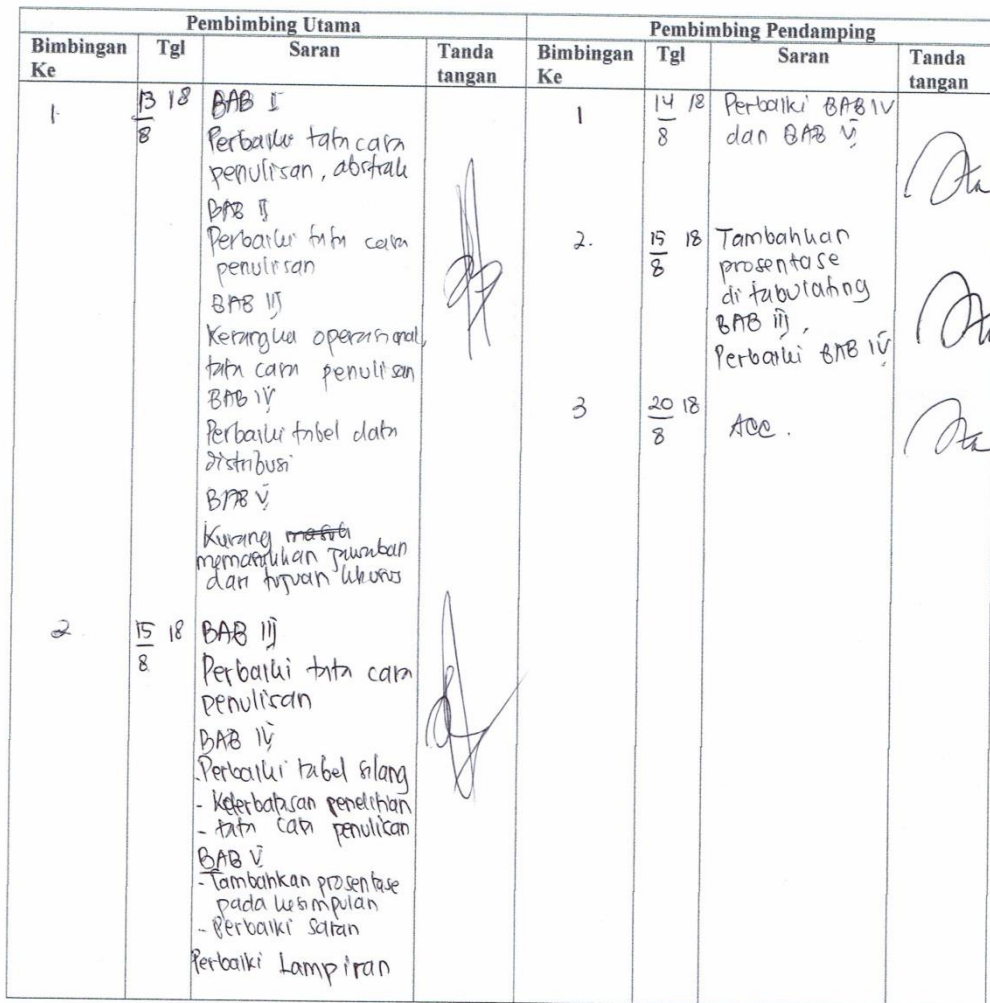 Pembimbing Utama
Pembimbing Pendamping
Bimbingan Ke
Tgl
Saran
Tanda tangan
Bimbingan Ke
Tgl
Saran
Tanda tangan
1.
13/8 18
BAB I
Perbaiki tata cara
penulisan, abstrak
BAB II
Perbaiki tata cara
penulisan
BAB III
Kerangka operasional,
tata cara penulisan
BAB IV
Perbaiki tabel data
distribusi
BAB V
Kurang
memasukan jawaban
dari tujuan khusus
2.
15/8 18
BAB III
Perbaiki tata cara
penulisan
BAB IV
- Perbaiki tabel silang
- Keterbatasan penelitian
- tata cara penulisan
BAB V
- Tambahkan prosentase
pada kesimpulan
- Perbaiki saran
Perbaiki Lampiran
1
14/8 18
Perbaiki BAB IV
dan BAB V
2.
15/8 18
Tambahkan
prosentase
di tabulating
BAB III,
Perbaiki BAB IV
3
20/8 18
ACC.